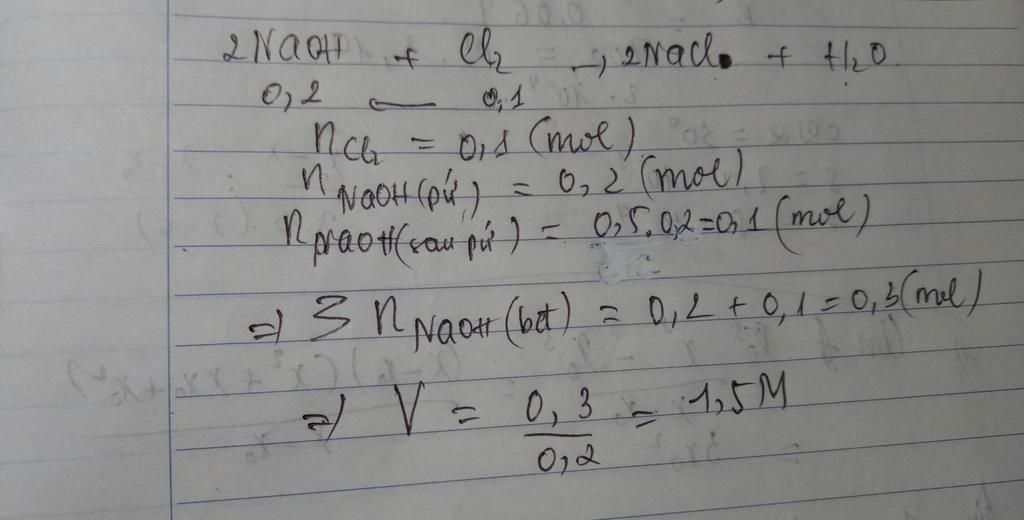 2NaOH + Cl₂ → 2NaCl + H₂O
0,2 ← 0,1
n Cl₂ = 0,1 (mol)
n NaOH (pứ) = 0,2 (mol)
n NaOH (sau pứ) = 0,5.0,2=0,1 (mol)
=) Σ n NaOH (bđ) = 0,2 + 0,1 = 0,3 (mol)
=) V = 0,3/0,2 = 1,5M